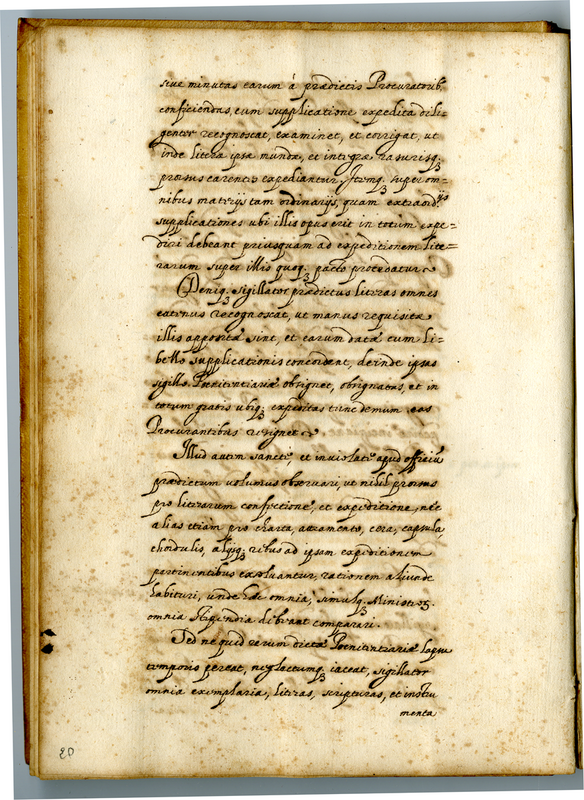 siue minutas earum á prædictis Procuratorib.
conficiendas, cum supplicatione expedita dili-
genter recognoscat, examinet, et corrigat, ut
inde litera ipsa munda, et integra rasurisq3
prorsus carentes expediantur, Itemq3 super om-
nibus materijs tam ordinarijs, quam extraord.ijs
supplicationes ubi illis opus erit in totum expe-
diri debeant priusquam ad expeditionem lite-
rarum super illis quoq3 pacto procedatur
Deniq3 sigillator prædictus literas omnes
eatenus recognoscat, ut manus requisita
illis apposita sint, et earum data cum li-
bello supplicationis concordent, deinde ipsas
sigillo Poenitentiariæ obsignet, obsignatas, et in
totum gratis ubiq3 expeditas tunc demum eos
Procurantibus resignet
Illud autem sancte, et inuiolate apud officiũ
prædictum uolumus obseruari, ut nihil prorsus
pro literarum confectione, et expeditione, nec
alias etiam pro charta, atramento, cera, capsula,
chordulis, alijsq3 rebus ad ipsam expeditionem
pertinentibus exoluantur, rationem aliunde
habituri, unde hæc omnia, simulq3 Ministris
omnia stipendia debeant comparari.
Sed ne quid rerum dictæ Poenitentiariæ lapsu
temporis pereat, neglectumq3 iaceat, sigillator
omnia exemplaria, literas, scripturas, et instru
menta